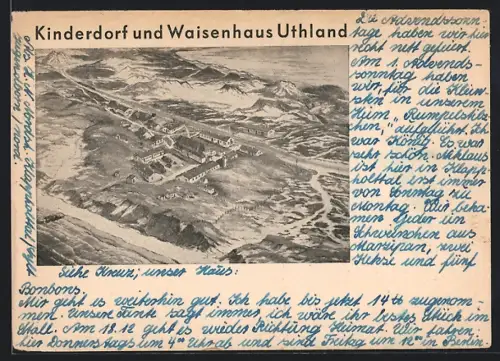 Kinderdorf und Waisenhaus Uthland
Die Advendssonn-
tage haben wir hier
recht nett gefeiert.
Am 1. Advends-
sonntag haben
wir für die Klein-
sten in unserem
Heim „Rumpelstilz-
chen" aufgeführt. Ich
war König. Es war
sehr schön. Niklaus
ist hier in Klapp-
holttal erst immer
von Sonntag zu
Montag. Wir beka-
men jeder ein
Schweinchen aus
Marzipan, zwei
Kekse und fünf
Siehe Kreuz; unser Haus:
Bonbons.
Mir geht es weiterhin gut. Ich habe bis jetzt 14 ℔ zugenom-
men. Unsere Tante sagt immer, ich wäre ihr bestes Stück im
Stall. Am 18.12 geht es wieder Richtung Heimat. Wir fahren
hier Donnerstags um 4°° Uhr ab und sind Freitag um 12°° in Berlin.
Klappholttal/Sylt